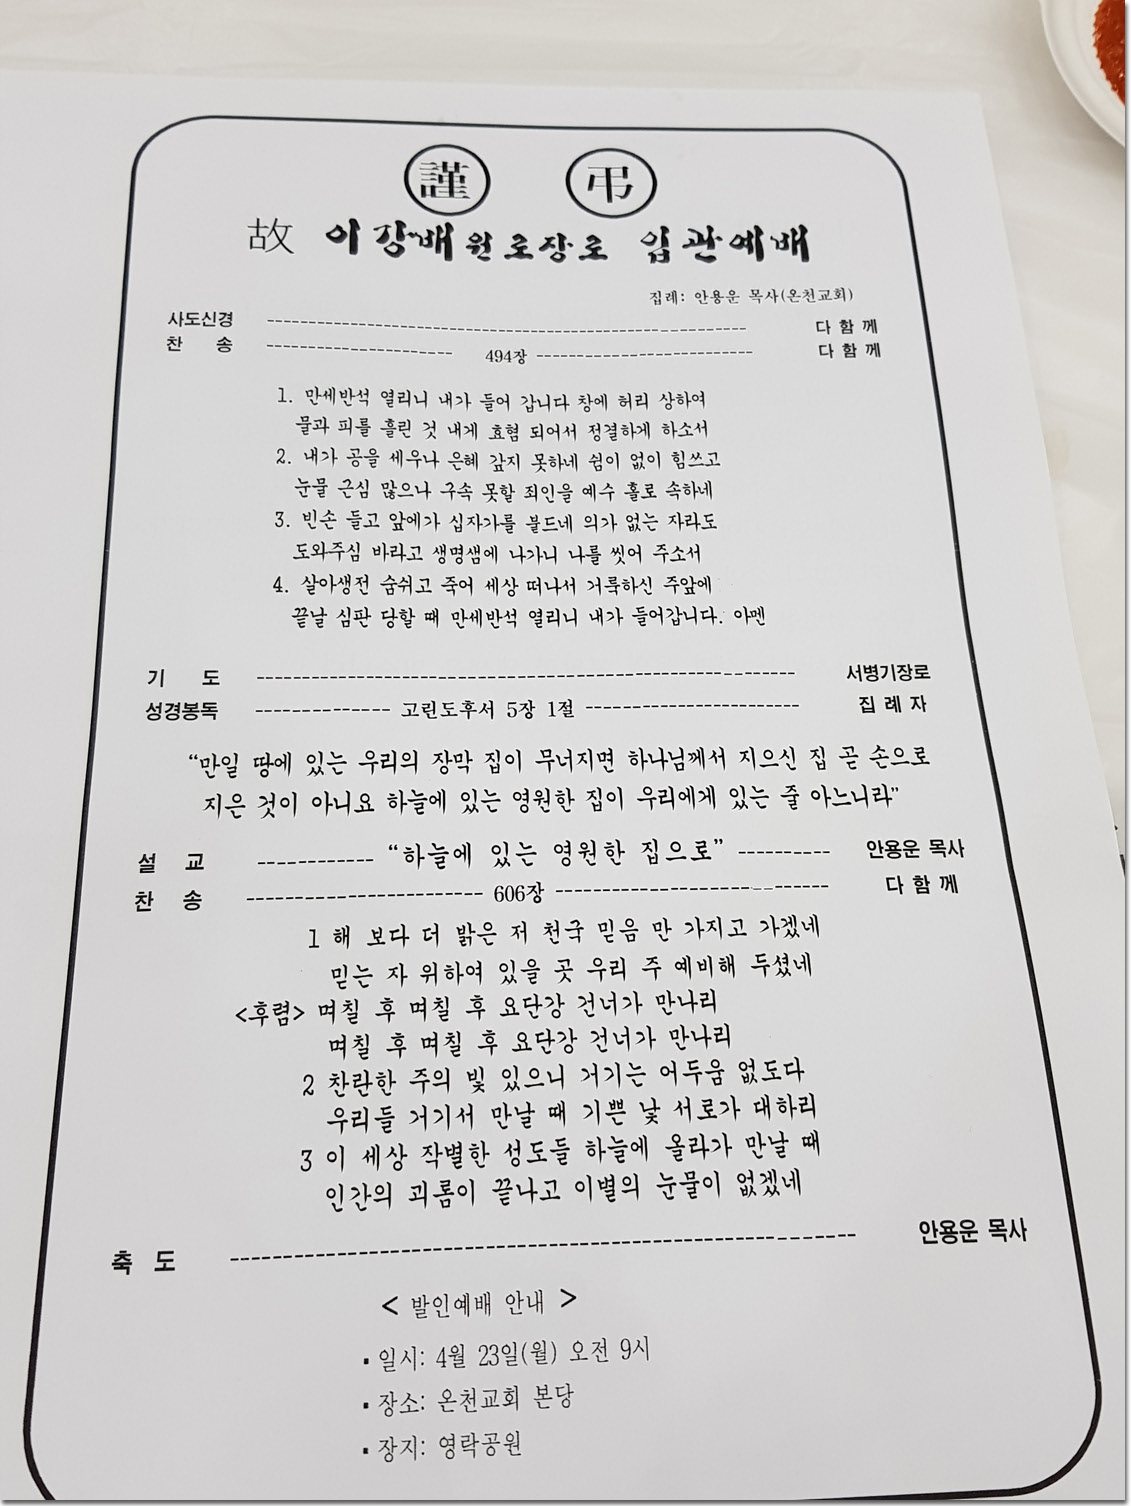 謹 弔
故 이장배원로장로 입관예배
집례: 안용운 목사(온천교회)
사도신경 ---------- 다 함 께
찬 송 ---------- 494장 ---------- 다 함 께
1. 만세반석 열리니 내가 들어 갑니다 창에 허리 상하여
물과 피를 흘린 것 내게 효험 되어서 정결하게 하소서
2. 내가 공을 세우나 은혜 갚지 못하네 쉼이 없이 힘쓰고
눈물 근심 많으나 구속 못할 죄인을 예수 홀로 속하네
3. 빈손 들고 앞에가 십자가를 붙드네 의가 없는 자라도
도와주심 바라고 생명샘에 나가니 나를 씻어 주소서
4. 살아생전 숨쉬고 죽어 세상 떠나서 거룩하신 주앞에
끝날 심판 당할 때 만세반석 열리니 내가 들어갑니다. 아멘
기 도 ---------- 서병기장로
성경봉독 ---------- 고린도후서 5장 1절 ---------- 집 례 자
“만일 땅에 있는 우리의 장막 집이 무너지면 하나님께서 지으신 집 곧 손으로
지은 것이 아니요 하늘에 있는 영원한 집이 우리에게 있는 줄 아느니라”
설 교 ---------- “하늘에 있는 영원한 집으로” ---------- 안용운 목사
찬 송 ---------- 606장 ---------- 다 함 께
1 해 보다 더 밝은 저 천국 믿음 만 가지고 가겠네
믿는 자 위하여 있을 곳 우리 주 예비해 두셨네
<후렴> 며칠 후 며칠 후 요단강 건너가 만나리
며칠 후 며칠 후 요단강 건너가 만나리
2 찬란한 주의 빛 있으니 거기는 어두움 없도다
우리들 거기서 만날 때 기쁜 낯 서로가 대하리
3 이 세상 작별한 성도들 하늘에 올라가 만날 때
인간의 괴롬이 끝나고 이별의 눈물이 없겠네
축 도 ---------- 안용운 목사
< 발인예배 안내 >
▪ 일시: 4월 23일(월) 오전 9시
▪ 장소: 온천교회 본당
▪ 장지: 영락공원